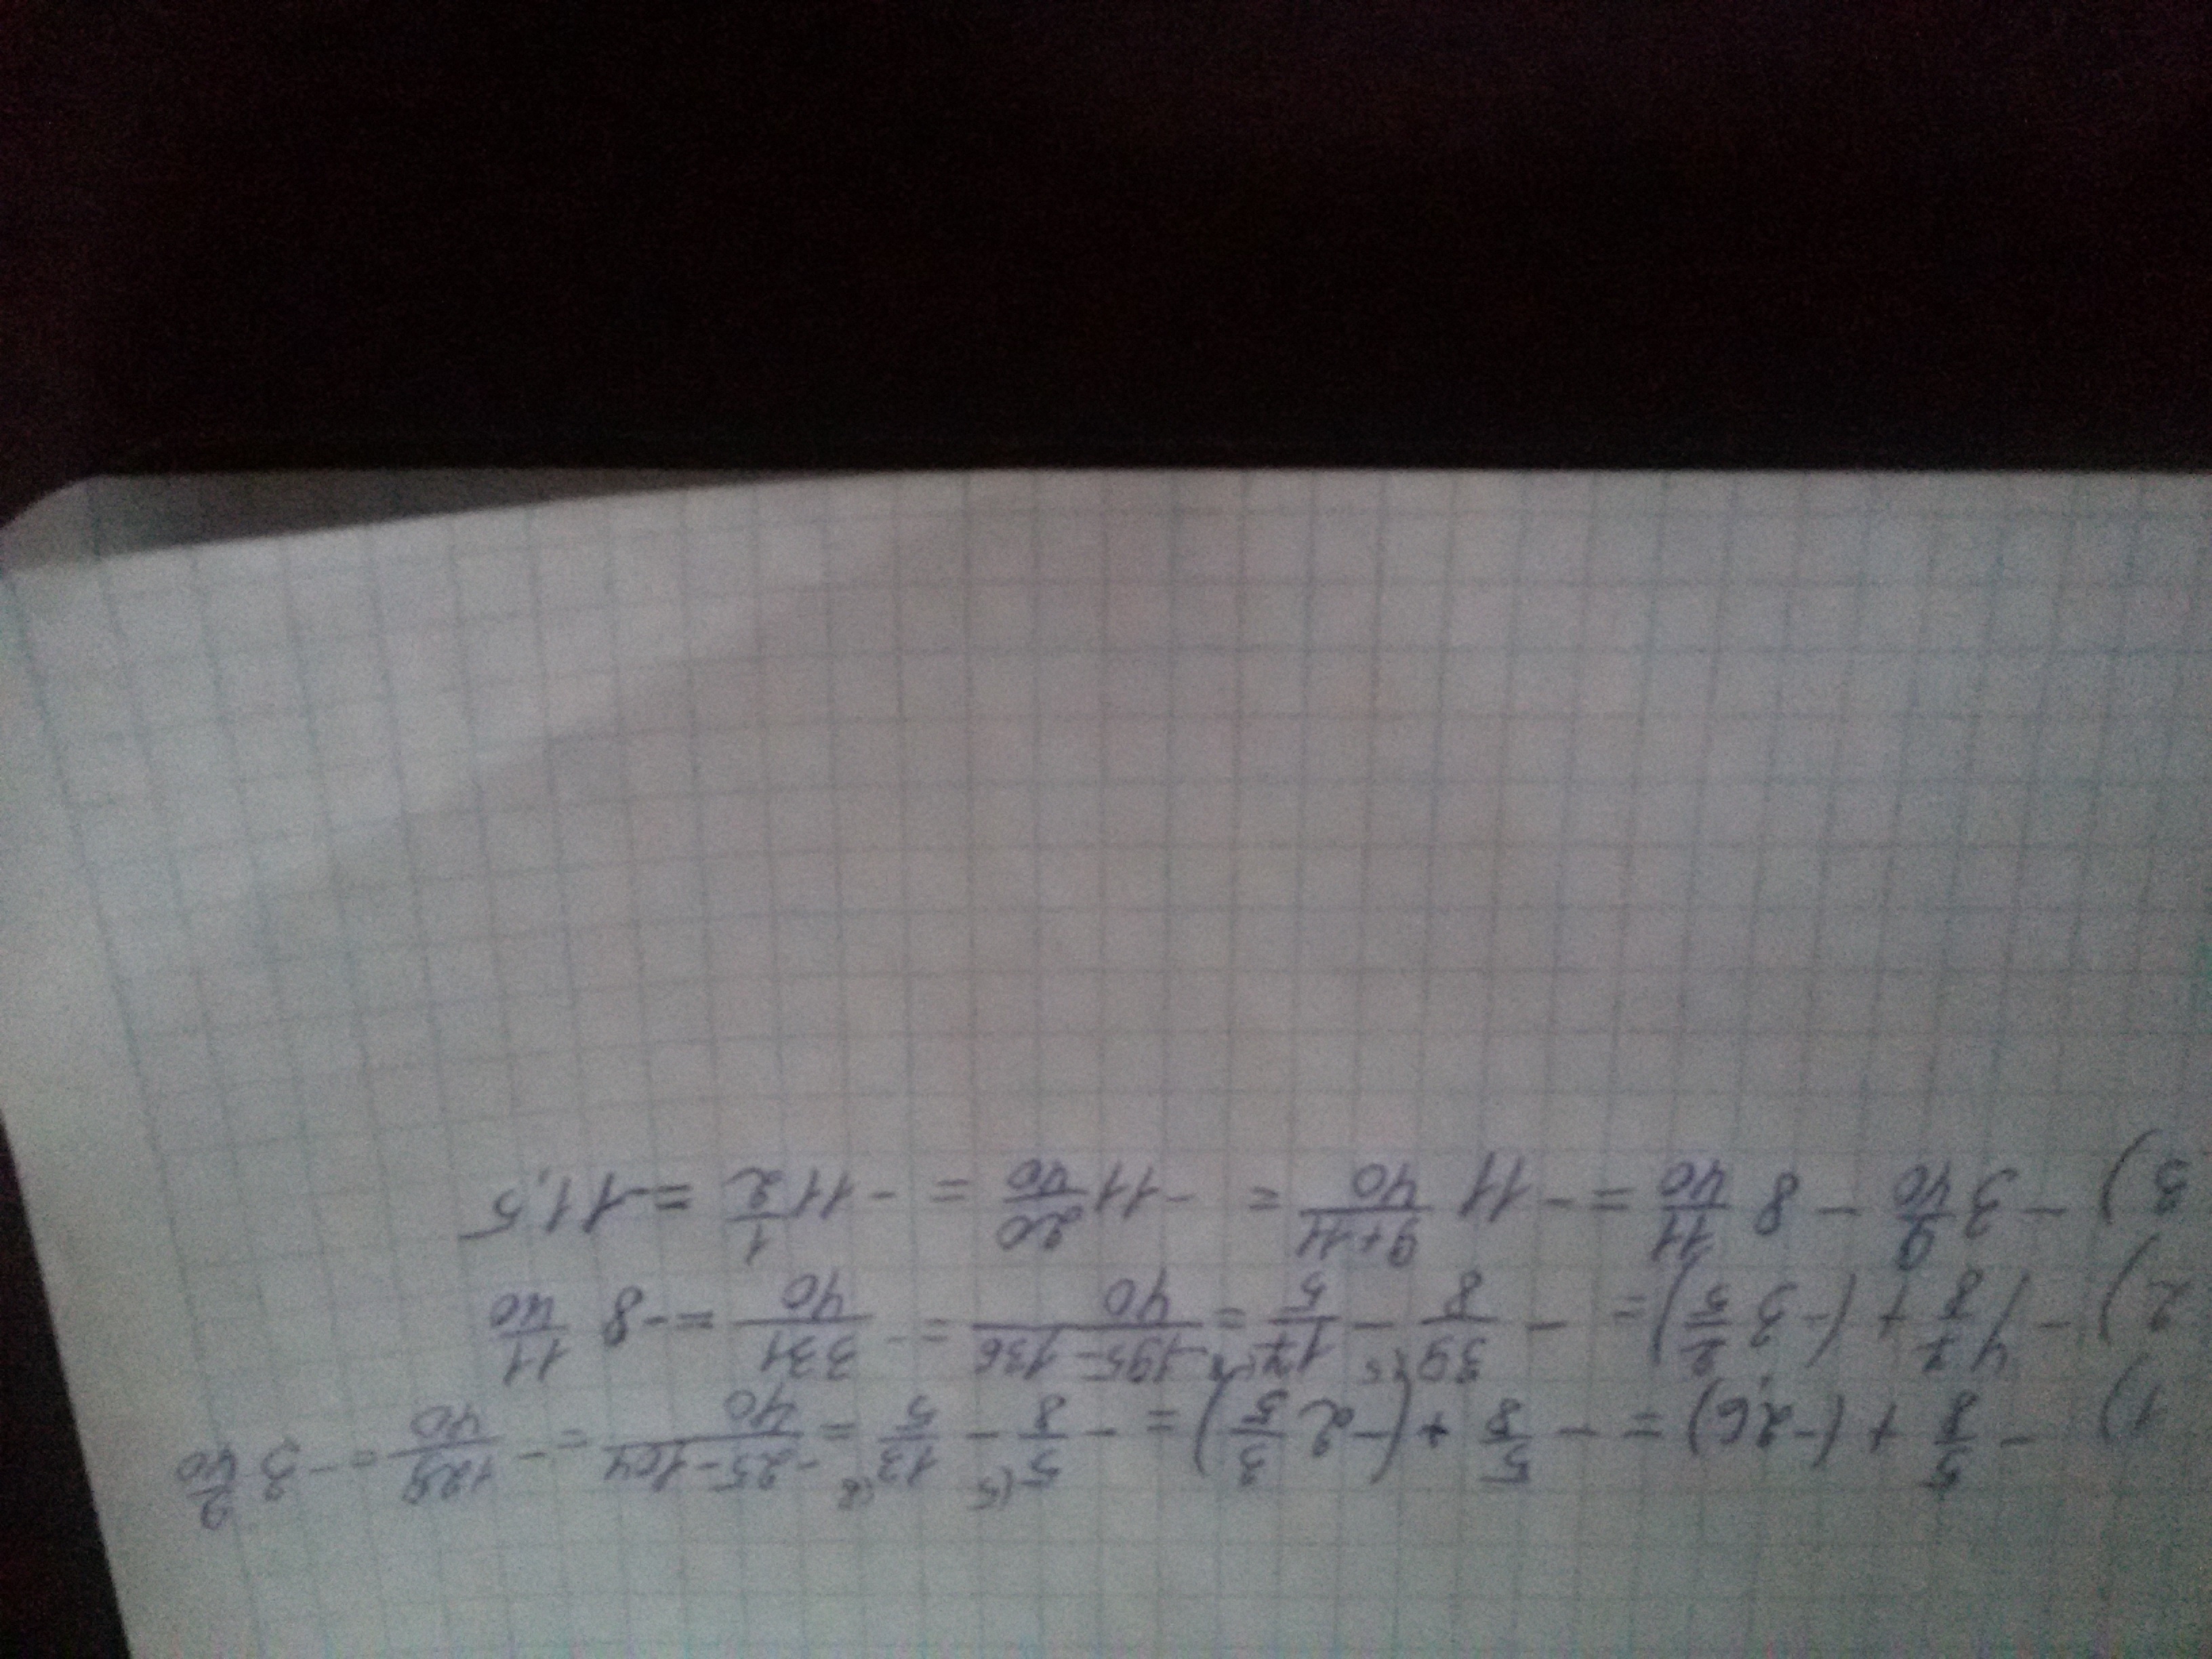 1) -5/8 + (-2,6) = -5/8 + (-2 3/5) = -5/8 (5 - 13/5 (8 = -25-104/40 = -129/40 = -3 9/40
2) -4 7/8 + (-3 2/5) = -39/8 (5 - 17/5 (8 = -195-136/40 = -331/40 = -8 11/40
3) -3 9/40 - 8 11/40 = -11 9+11/40 = -11 20/40 = -11 1/2 = -11,5